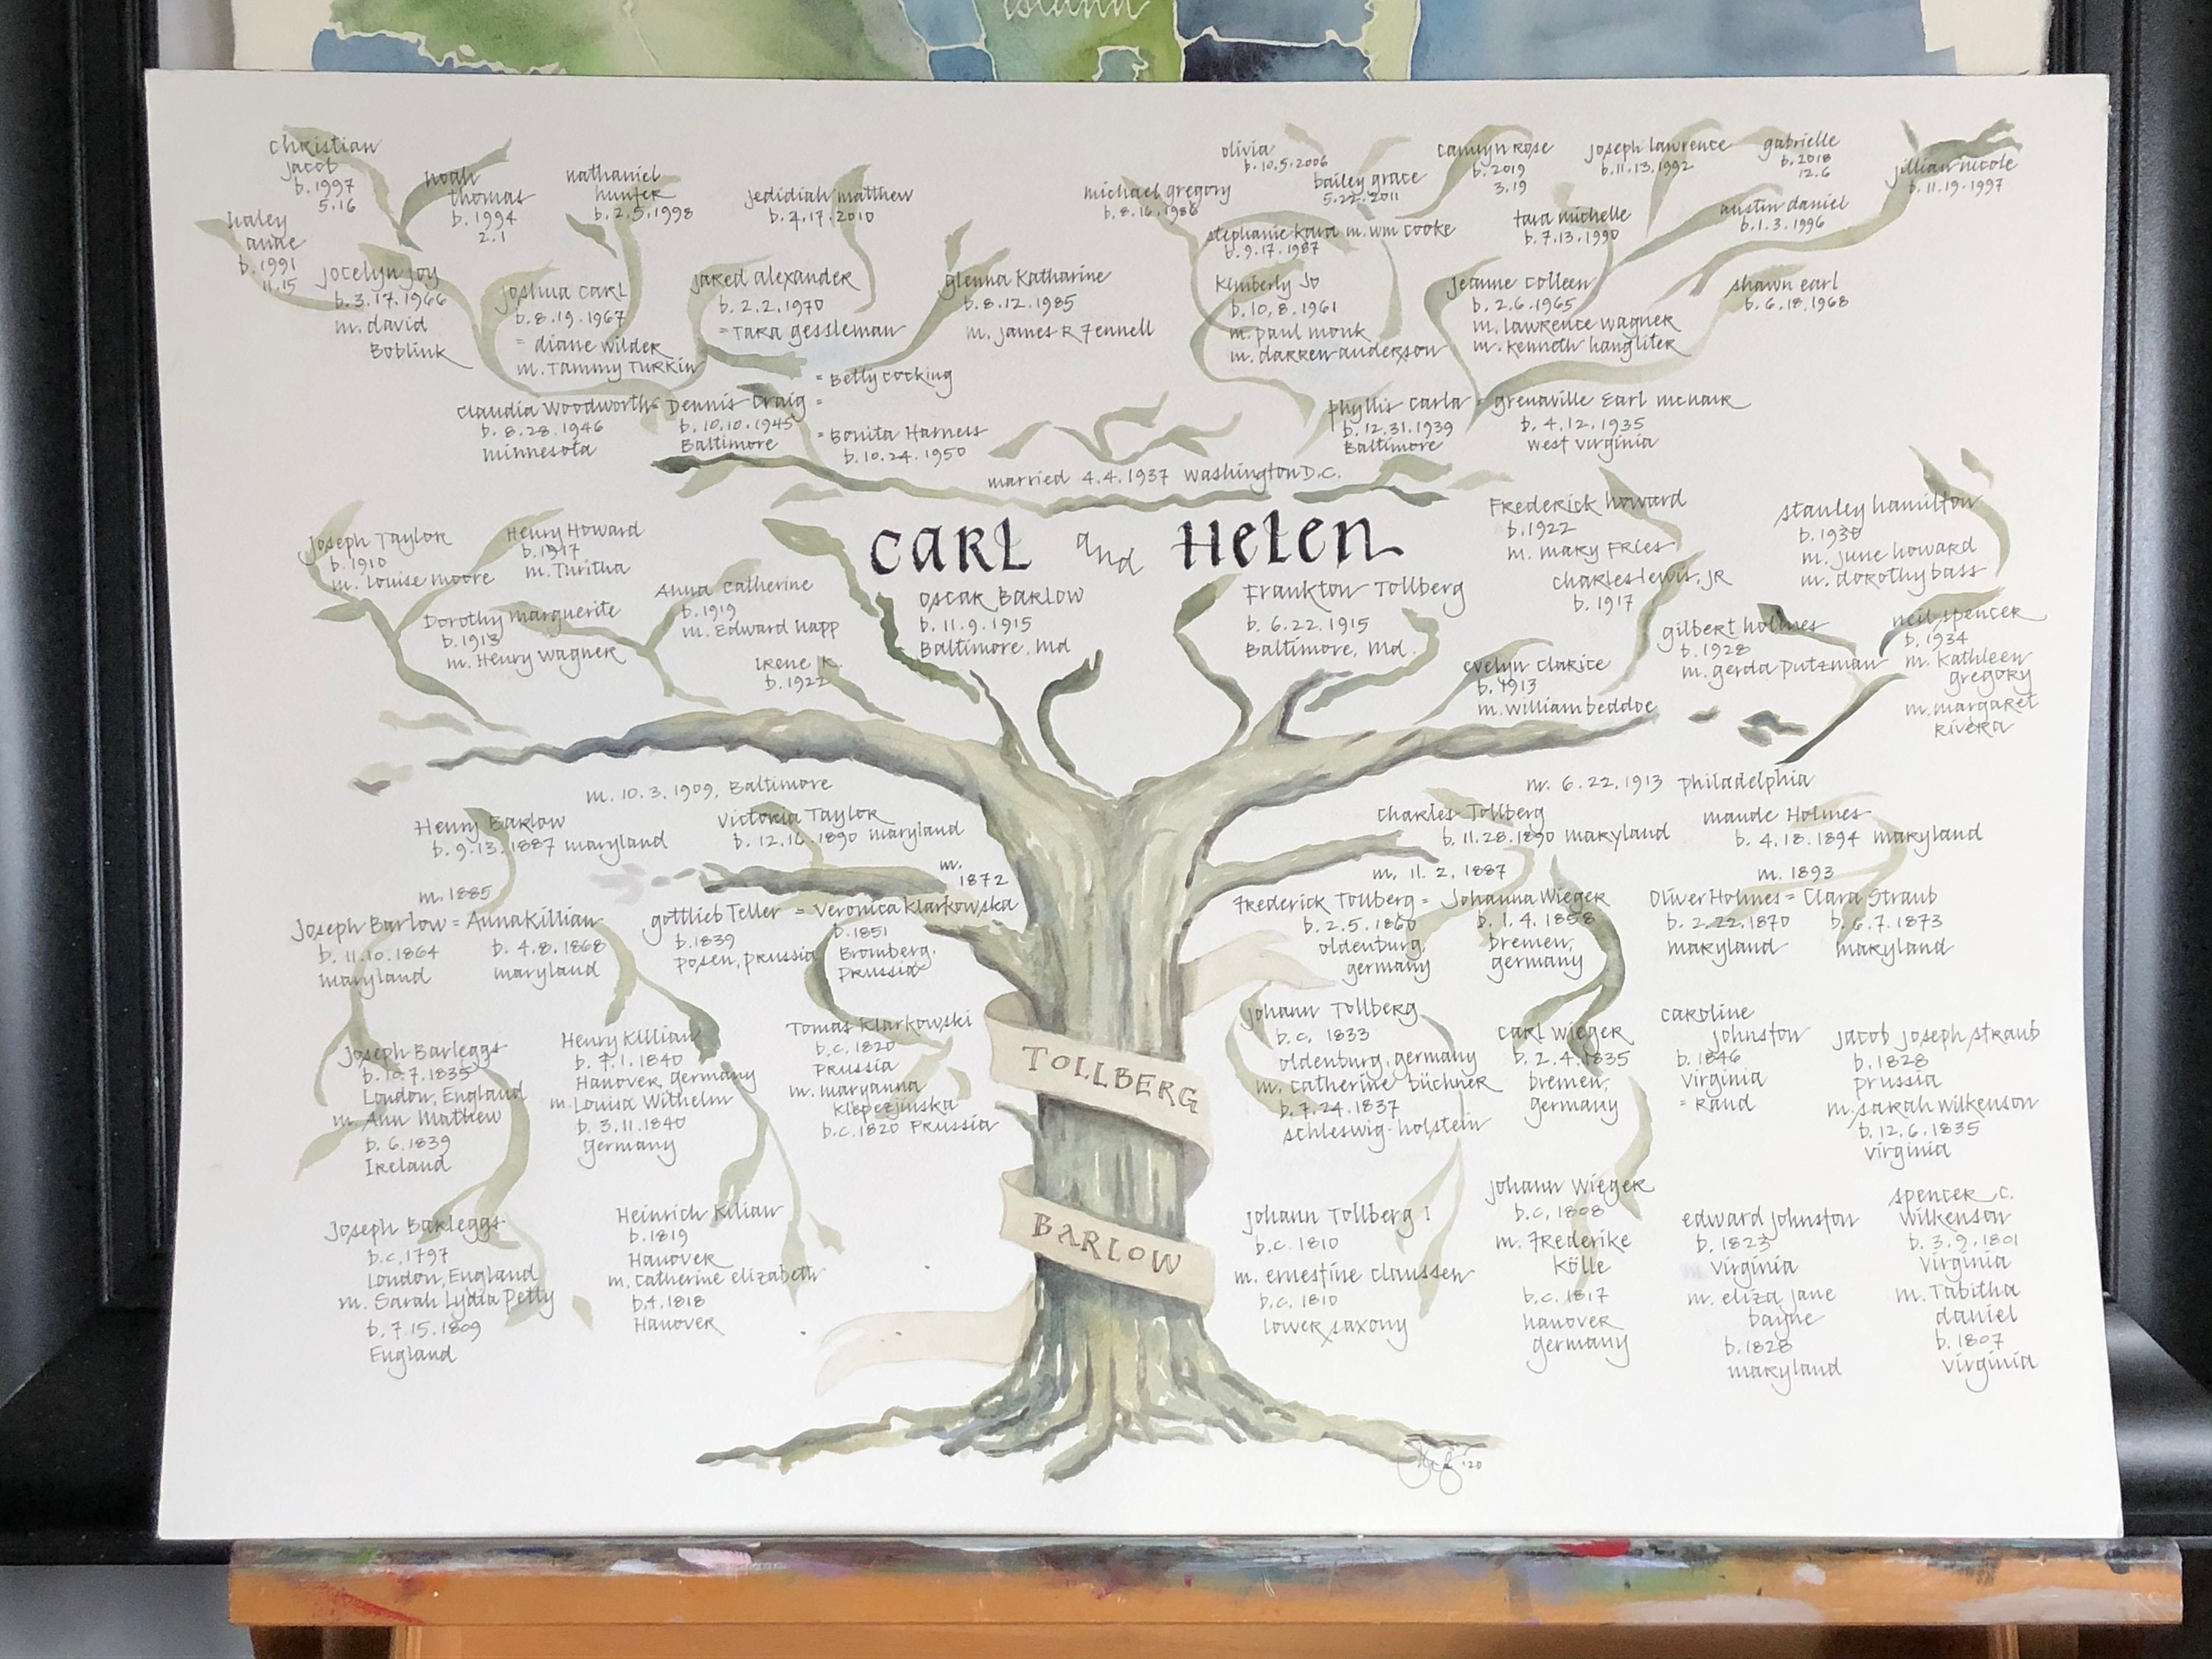 island
christian
jacob
b. 1997
5.16
noah
thomas
b. 1994
2.1
nathaniel
hunter
b. 2.5.1998
jedidiah matthew
b. 4.17.2010
haley
anne
b. 1991
11.15
jocelyn joy
b. 3.17.1966
m. david
Boblink
joshua carl
b. 8.19.1967
= diane wilder
m. Tammy Turkin
jared alexander
b. 2.2.1970
= Tara gessleman
glenna Katharine
b. 8.12.1985
m. james R Fennell
= Betty Cocking
Claudia Woodworth = Dennis Craig =
b. 8.28.1946
minnesota
b. 10.10.1945
Baltimore
= Bonita Harness
b. 10.24.1950
olivia
b. 10.5.2006
bailey grace
5.22.2011
camryn rose
b. 2019
3.19
joseph lawrence
b. 11.13.1992
gabrielle
b. 2018
12.6
jillian nicole
b. 11.19.1997
michael gregory
b. 8.16.1986
stephanie kara m. wm cooke
b. 9.17.1987
tara michelle
b. 7.13.1990
austin daniel
b. 1.3.1996
Kimberly Jo
b. 10.8.1961
m. paul monk
m. darren anderson
jeanne colleen
b. 2.6.1965
m. lawrence wagner
m. kenneth hangliter
shawn earl
b. 6.18.1968
phyllis carla = grenaville Earl mcnair
b. 12.31.1939
Baltimore
b. 4.12.1935
west virginia
married 4.4.1937 Washington D.C.
CARL and HELEN
Oscar Barlow
b. 11.9.1915
Baltimore, md
Frankton Tollberg
b. 6.22.1915
Baltimore, md.
Joseph Taylor
b. 1910
m. Louise moore
Henry Howard
b. 1917
m. Turitha
Dorothy marguerite
b. 1913
m. Henry Wagner
Anna Catherine
b. 1919
m. Edward Happ
Irene R.
b. 1922
Frederick howard
b. 1922
m. mary Fries
charles lewis, jr
b. 1917
evelyn clarice
b. 1913
m. william beddoe
stanley hamilton
b. 1930
m. june howard
m. dorothy bass
gilbert holmes
b. 1928
m. gerda putzman
neil spencer
b. 1934
m. kathleen
gregory
m. margaret
rivera
m. 10.3.1909, Baltimore
Henry Barlow
b. 9.13.1887 maryland
Victoria Taylor
b. 12.16.1890 maryland
m. 1885
Joseph Barlow = Anna Killian
b. 11.10.1864
maryland
b. 4.8.1868
maryland
m.
1872
gottlieb Teller = Veronica Klarkowska
b. 1839
Posen, prussia
b. 1851
Bromberg,
Prussia
Joseph Barleggs
b. 10.7.1835
London, England
m. Ann Mathew
b. 6.1839
Ireland
Henry Killian
b. 7.1.1840
Hanover, germany
m. Louisa Wilhelm
b. 3.11.1840
germany
Tomas Klarkowski
b.c. 1820
Prussia
m. maryanna
Klepezjinska
b.c. 1820 Prussia
Joseph Barleggs
b.c. 1797
London, England
m. Sarah Lydia Petty
b. 7.15.1809
England
Heinrich Kilian
b. 1819
Hanover
m. Catherine elizabeth
b. 4.1818
Hanover
m. 6.22.1913 philadelphia
Charles Tollberg
b. 11.28.1890 maryland
maude Holmes
b. 4.18.1894 maryland
m. 11.2.1887
Frederick Tollberg = Johanna Wieger
b. 2.5.1860
oldenburg,
germany
b. 1.4.1858
bremen,
germany
m. 1893
Oliver Holmes = Clara Straub
b. 2.22.1870
maryland
b. 6.7.1873
maryland
johann Tollberg
b.c. 1833
oldenburg, germany
m. catherine büchner
b. 7.24.1837
schleswig-holstein
carl wieger
b. 2.4.1835
bremen,
germany
caroline
johnston
b. 1846
virginia
= Rand
jacob joseph straub
b. 1828
prussia
m. sarah wilkenson
b. 12.6.1835
virginia
johann Tollberg I
b.c. 1810
m. ernestine claussen
b.c. 1810
lower saxony
johann Wieger
b.c. 1808
m. Frederike
Kölle
b.c. 1817
hanover
germany
edward johnston
b. 1823
virginia
m. eliza jane
bayne
b. 1828
maryland
spencer c.
wilkenson
b. 3.9.1801
virginia
m. Tabitha
daniel
b. 1807
virginia
TOLLBERG
BARLOW
'20